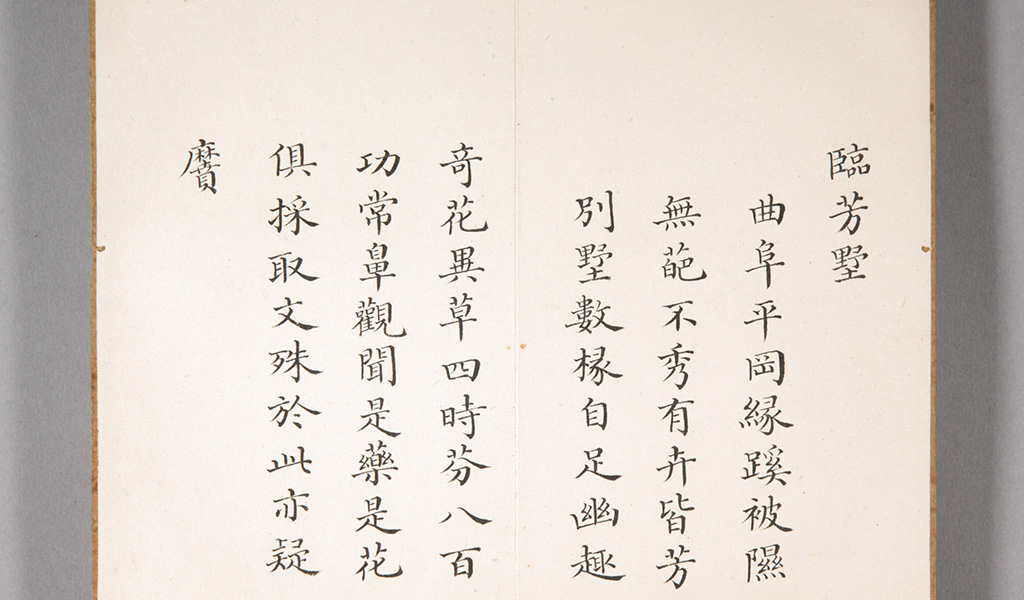 臨芳墅
曲阜平岡緣蹊被隰
無葩不秀有卉皆芳
別墅數椽自足幽趣
奇花異草四時芬八百
功常鼻觀聞是藥是花
俱採取文殊於此亦疑
贗